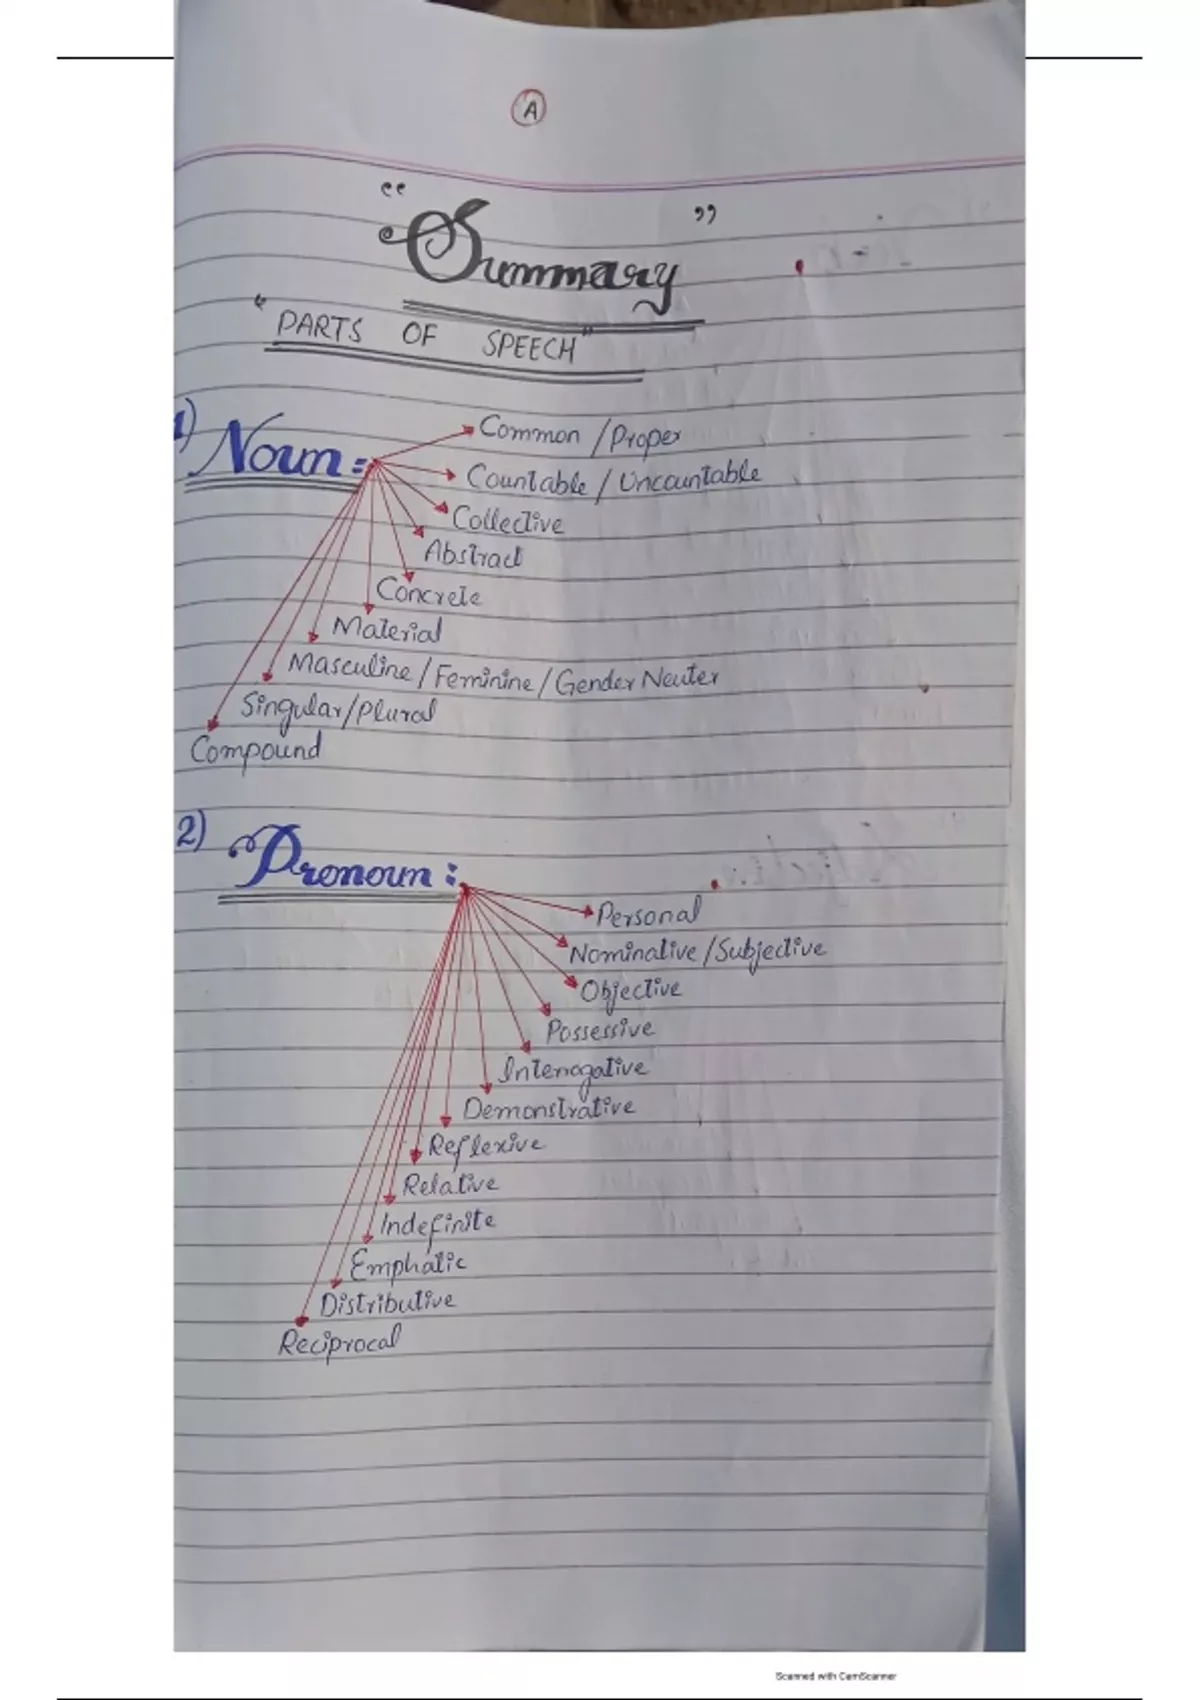 A
"Summary"
"PARTS OF SPEECH"
1) Noun :-
Common / Proper
Countable / Uncountable
Collective
Abstract
Concrete
Material
Masculine / Feminine / Gender Neuter
Singular / Plural
Compound
2) Pronoun :-
Personal
Nominative / Subjective
Objective
Possessive
Interrogative
Demonstrative
Reflexive
Relative
Indefinite
Emphatic
Distributive
Reciprocal
Scanned with CamScanner